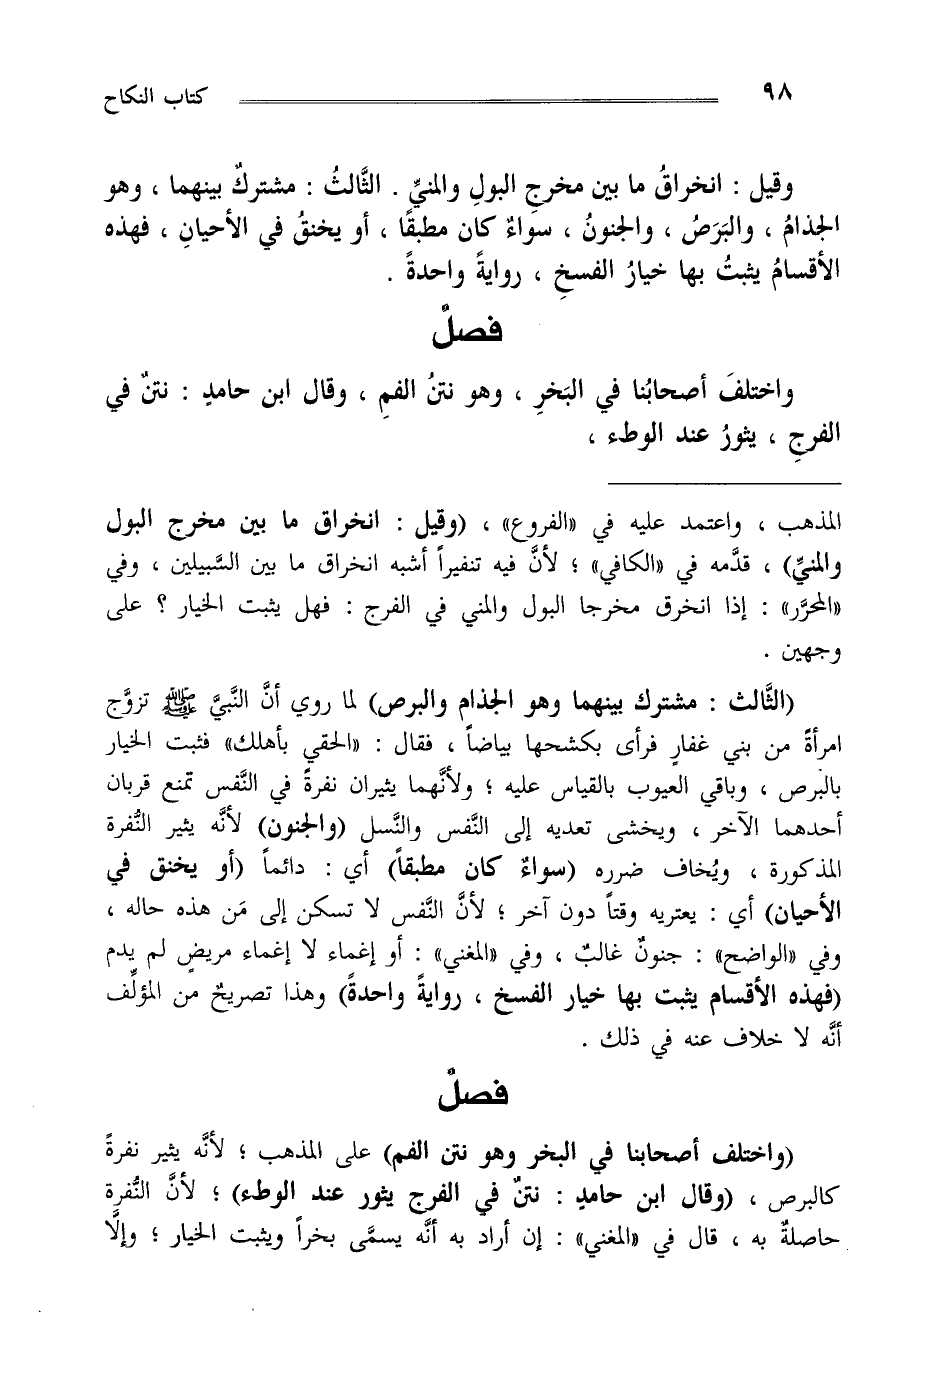 ٩٨ كتاب النكاح
وقيل : انخراقُ ما بين مخرجِ البولِ والمنيِّ . الثَّالثُ : مشتركٌ بينهما ، وهو
الجذامُ ، والبَرَصُ ، والجنونُ ، سواءٌ كان مطبقًا ، أو يخنقُ في الأحيانِ ، فهذه
الأقسامُ يثبتُ بها خيارُ الفسخِ ، روايةً واحدةً .
فصلٌ
واختلفَ أصحابُنا في البَخرِ ، وهو نتنُ الفمِ ، وقال ابن حامدٍ : نتنٌ في
الفرجِ ، يثورُ عند الوطء ،
المذهب ، واعتمد عليه في «الفروع» ، (وقيل : انخراق ما بين مخرج البول
والمنيِّ) ، قدَّمه في «الكافي» ؛ لأنَّ فيه تنفيراً أشبه انخراق ما بين السَّبيلين ، وفي
«المحرَّر» : إذا انخرق مخرجا البول والمني في الفرج : فهل يثبت الخيار ؟ على
وجهين .
(الثَّالث : مشترك بينهما وهو الجذام والبرص) لما روي أنَّ النَّبيَّ ﷺ تزوَّج
امرأةً من بني غفارٍ فرأى بكشحها بياضاً ، فقال : «الحقي بأهلك» فثبت الخيار
بالبرص ، وباقي العيوب بالقياس عليه ؛ ولأنَّهما يثيران نفرةً في النَّفس تمنع قربان
أحدهما الآخر ، ويخشى تعديه إلى النَّفس والنَّسل (والجنون) لأنَّه يثير النُّفرة
المذكورة ، ويُخاف ضرره (سواءٌ كان مطبقاً) أي : دائماً (أو يخنق في
الأحيان) أي : يعتريه وقتاً دون آخر ؛ لأنَّ النَّفس لا تسكن إلى مَن هذه حاله ،
وفي «الواضح» : جنونٌ غالبٌ ، وفي «المغني» : أو إغماء لا إغماء مريضٍ لم يدم
(فهذه الأقسام يثبت بها خيار الفسخ ، روايةً واحدةً) وهذا تصريحٌ من المؤلِّف
أنَّه لا خلاف عنه في ذلك .
فصلٌ
(واختلف أصحابنا في البخر وهو نتن الفم) على المذهب ؛ لأنَّه يثير نفرةً
كالبرص ، (وقال ابن حامدٍ : نتنٌ في الفرج يثور عند الوطء) ؛ لأنَّ النُّفرة
حاصلةٌ به ، قال في «المغني» : إن أراد به أنَّه يسمَّى بخراً ويثبت الخيار ؛ وإلَّا